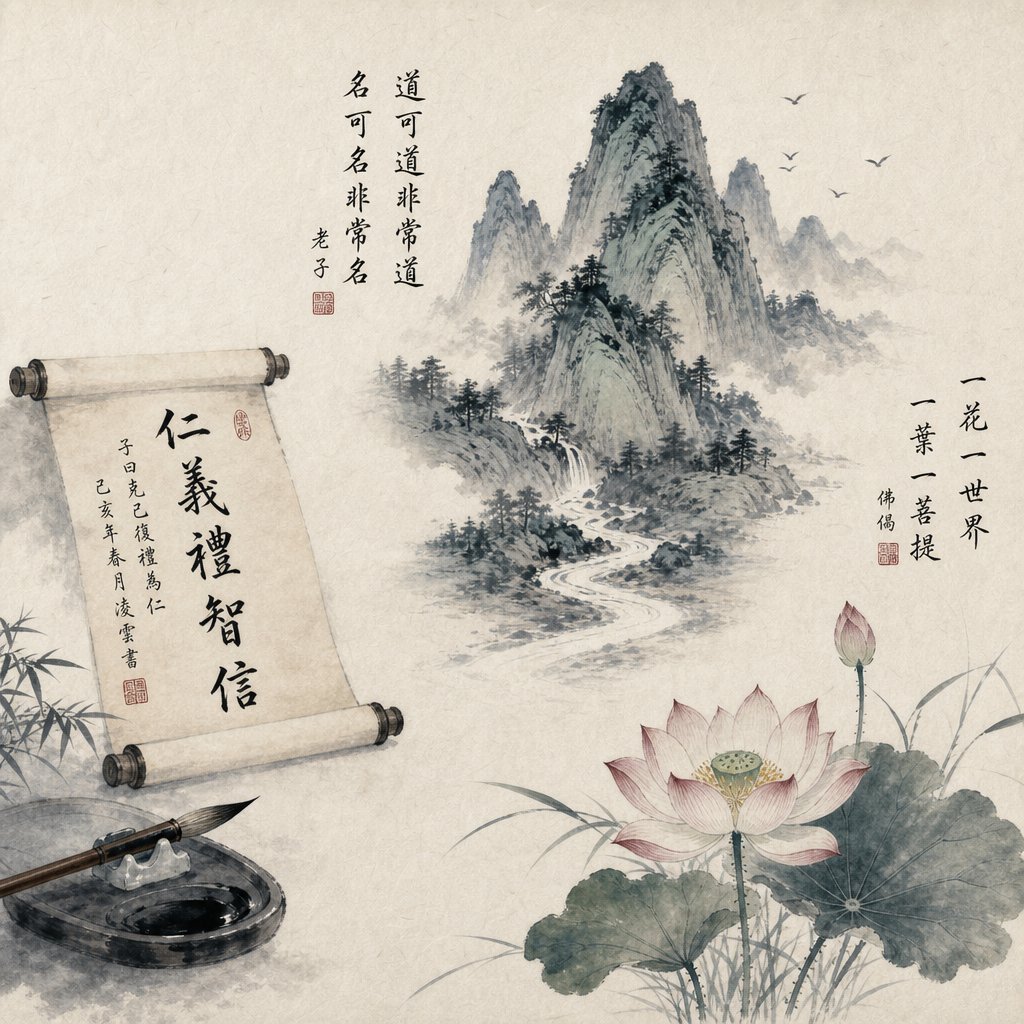 道可道非常道
名可名非常名
老子
仁義禮智信
子曰克己復禮為仁
己亥年春月凌雲書
一花一世界
一葉一菩提
佛偈